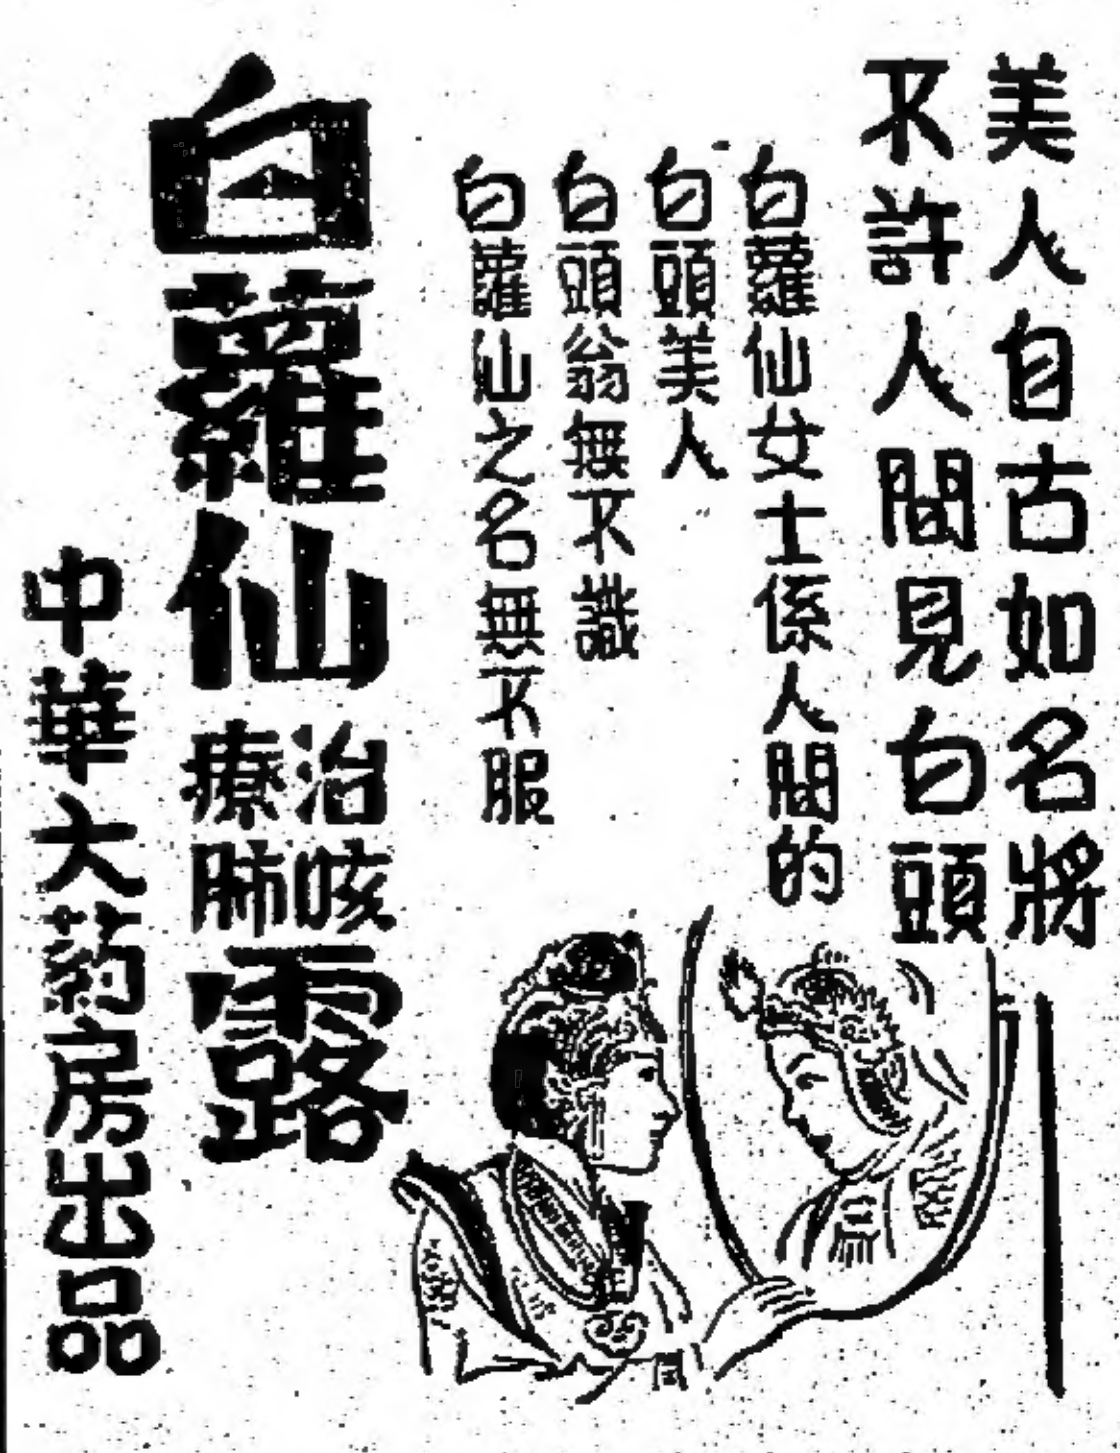 美人自古如名將
不許人間見白頭
白蘿仙女士係人間的
白頭美人
白頭翁無不識
白蘿仙之名無不服
白蘿仙治咳療肺露
中華大药房出品